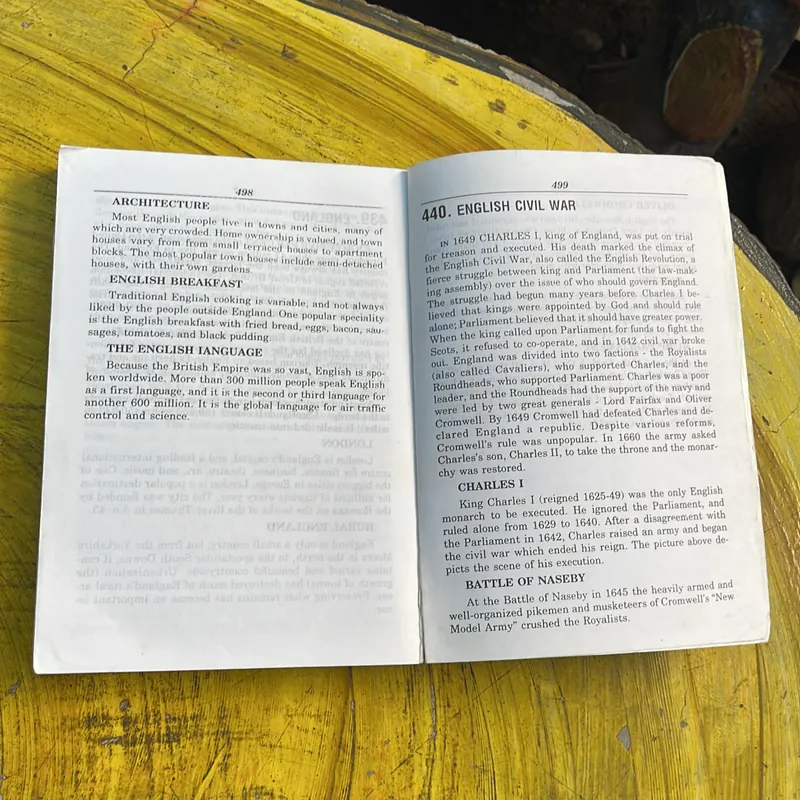 498
ARCHITECTURE
Most English people live in towns and cities, many of
which are very crowded. Home ownership is valued, and town
houses vary from from small terraced houses to apartment
blocks. The most popular town houses include semi-detached
houses, with their own gardens.
ENGLISH BREAKFAST
Traditional English cooking is variable, and not always
liked by the people outside England. One popular speciality
is the English breakfast with fried bread, eggs, bacon, sau-
sages, tomatoes, and black pudding.
THE ENGLISH IANGUAGE
Because the British Empire was so vast, English is spo-
ken worldwide. More than 300 million people speak English
as a first language, and it is the second or third language for
another 600 million. It is the global language for air traffic
control and science.
499
440. ENGLISH CIVIL WAR
IN 1649 CHARLES I, king of England, was put on trial
for treason and executed. His death marked the climax of
the English Civil War, also called the English Revolution, a
fierce struggle between king and Parliament (the law-mak-
ing assembly) over the issue of who should govern England.
The struggle had begun many years before. Charles I be-
lieved that kings were appointed by God and should rule
alone; Parliament believed that it should have greater power.
When the king called upon Parliament for funds to fight the
Scots, it refused to co-operate, and in 1642 civil war broke
out. England was divided into two factions - the Royalists
(also called Cavaliers), who supported Charles, and the
Roundheads, who supported Parliament. Charles was a poor
leader, and the Roundheads had the support of the navy and
were led by two great generals - Lord Fairfax and Oliver
Cromwell. By 1649 Cromwell had defeated Charles and de-
clared England a republic. Despite various reforms,
Cromwell's rule was unpopular. In 1660 the army asked
Charles's son, Charles II, to take the throne and the monar-
chy was restored.
CHARLES I
King Charles I (reigned 1625-49) was the only English
monarch to be executed. He ignored the Parliament, and
ruled alone from 1629 to 1640. After a disagreement with
the Parliament in 1642, Charles raised an army and began
the civil war which ended his reign. The picture above de-
picts the scene of his execution.
BATTLE OF NASEBY
At the Battle of Naseby in 1645 the heavily armed and
well-organized pikemen and musketeers of Cromwell's "New
Model Army" crushed the Royalists.